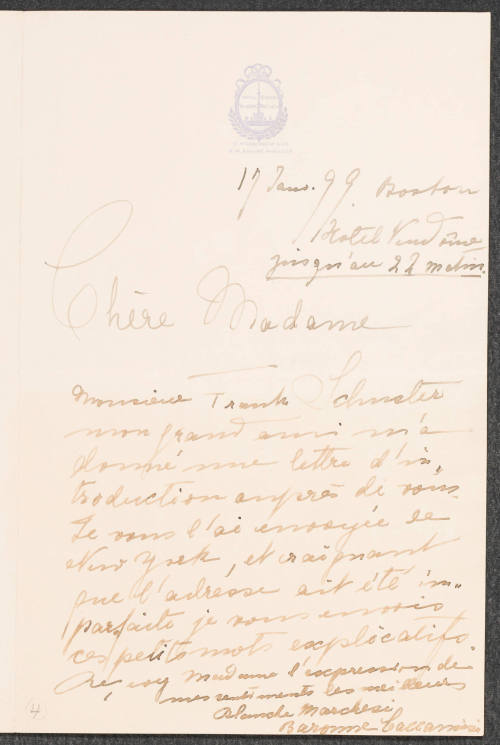 17 Janv. 99 Boston
Hotel Vendôme
jusqu'au 22 matin.
Chère Madame
Monsieur Frank Schuster
mon grand ami m'a
donné une lettre d'in-
troduction auprès de vous.
Je vous l'ai envoyée de
New York, et craignant
que l'adresse ait été im-
parfaite je vous envois
ces petits mots explicatifs.
Recevez Madame l'expression de
mes sentiments les meilleurs
Blanche Marchesi
Baronne Caccamisi
4